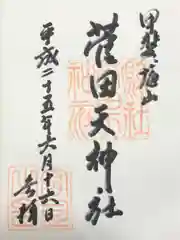 甲斐塩山
菅田天神社
平成二十五年六月十六日
奉拝